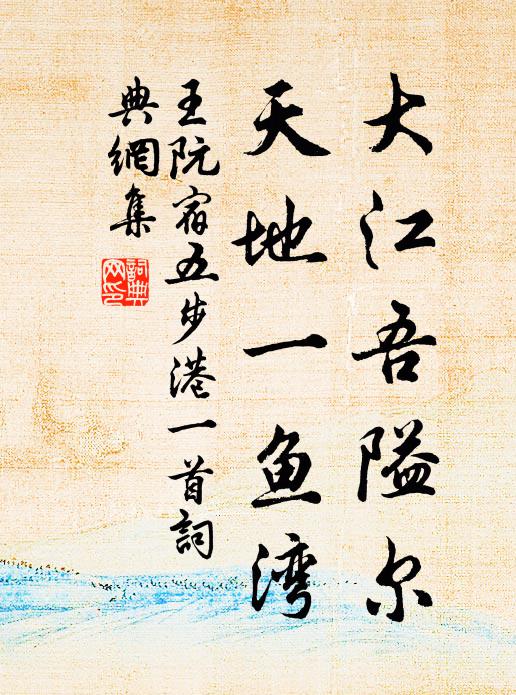 大江吾隘尔
天地一鱼湾
王阮宿五步港一首詞
典網集
詞典
网印